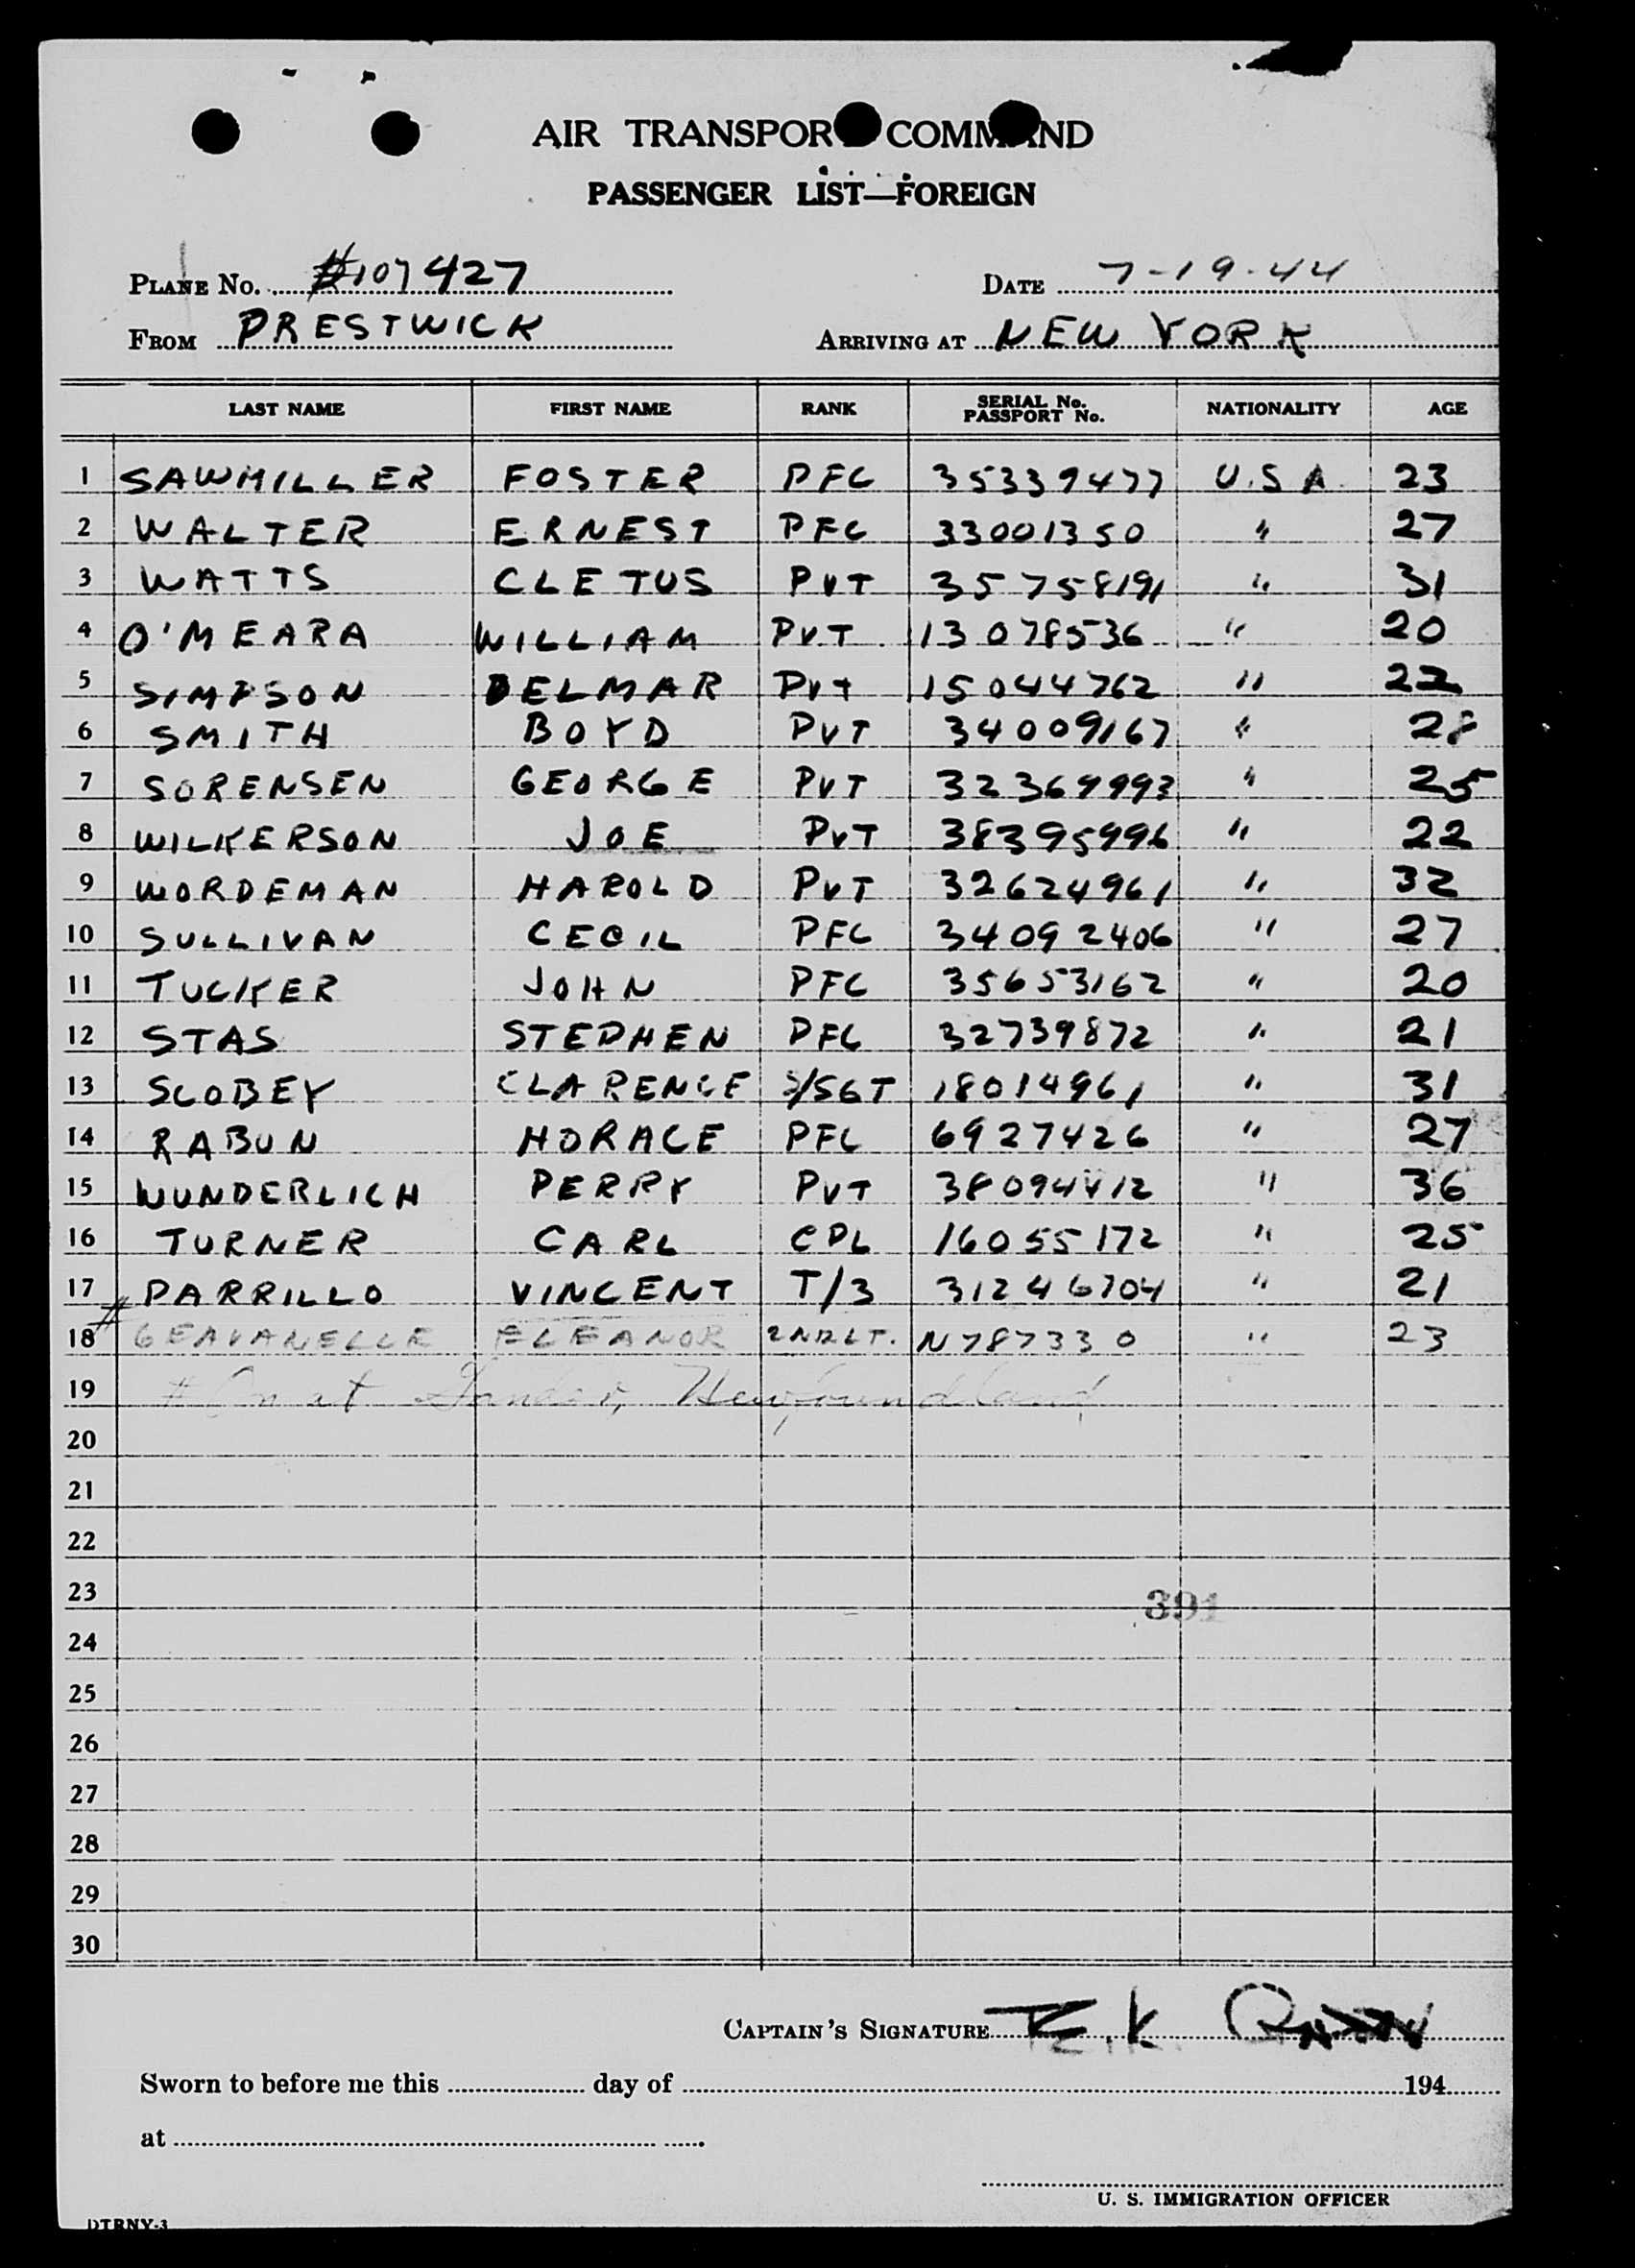 AIR TRANSPORT COMMAND
PASSENGER LIST—FOREIGN
PLANE No. #107427 DATE 7-19-44
FROM PRESTWICK ARRIVING AT NEW YORK
LAST NAME FIRST NAME RANK SERIAL No. PASSPORT No. NATIONALITY AGE
1 SAWMILLER FOSTER PFC 35339477 U.S.A. 23
2 WALTER ERNEST PFC 33001350 " 27
3 WATTS CLETUS PVT 35758191 " 31
4 O'MEARA WILLIAM PVT 13078536 " 20
5 SIMPSON DELMAR PVT 15044762 " 22
6 SMITH BOYD PVT 34009167 " 28
7 SORENSEN GEORGE PVT 32369993 " 25
8 WILKERSON JOE PVT 38395996 " 22
9 WORDEMAN HAROLD PVT 32624961 " 32
10 SULLIVAN CECIL PFC 34092406 " 27
11 TUCKER JOHN PFC 35653162 " 20
12 STAS STEPHEN PFC 32739872 " 21
13 SCOBEY CLARENCE S/SGT 18014961 " 31
14 RABUN HORACE PFC 6927426 " 27
15 WUNDERLICH PERRY PVT 38094412 " 36
16 TURNER CARL CPL 16055172 " 25
17 PARRILLO VINCENT T/3 31246704 " 21
# 18 GEAVANELLE ELEANOR 2ND LT. N787330 " 23
19 # On at Gander, Newfoundland
20
21
22
23 391
24
25
26
27
28
29
30
CAPTAIN'S SIGNATURE
Sworn to before me this day of 194
at
U. S. IMMIGRATION OFFICER
DTRNY-3